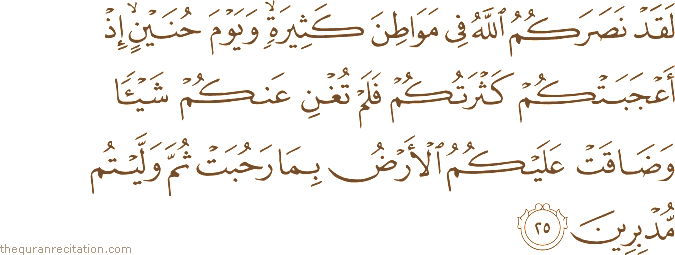 لَقَدۡ نَصَرَكُمُ ٱللَّهُ فِى مَوَاطِنَ كَثِيرَةٍۙ وَيَوۡمَ حُنَيۡنٍۙ إِذۡ
أَعۡجَبَتۡكُمۡ كَثۡرَتُكُمۡ فَلَمۡ تُغۡنِ عَنكُمۡ شَيۡـًٔا
وَضَاقَتۡ عَلَيۡكُمُ ٱلۡأَرۡضُ بِمَا رَحُبَتۡ ثُمَّ وَلَّيۡتُم
مُّدۡبِرِينَ ٢٥
thequranrecitation.com